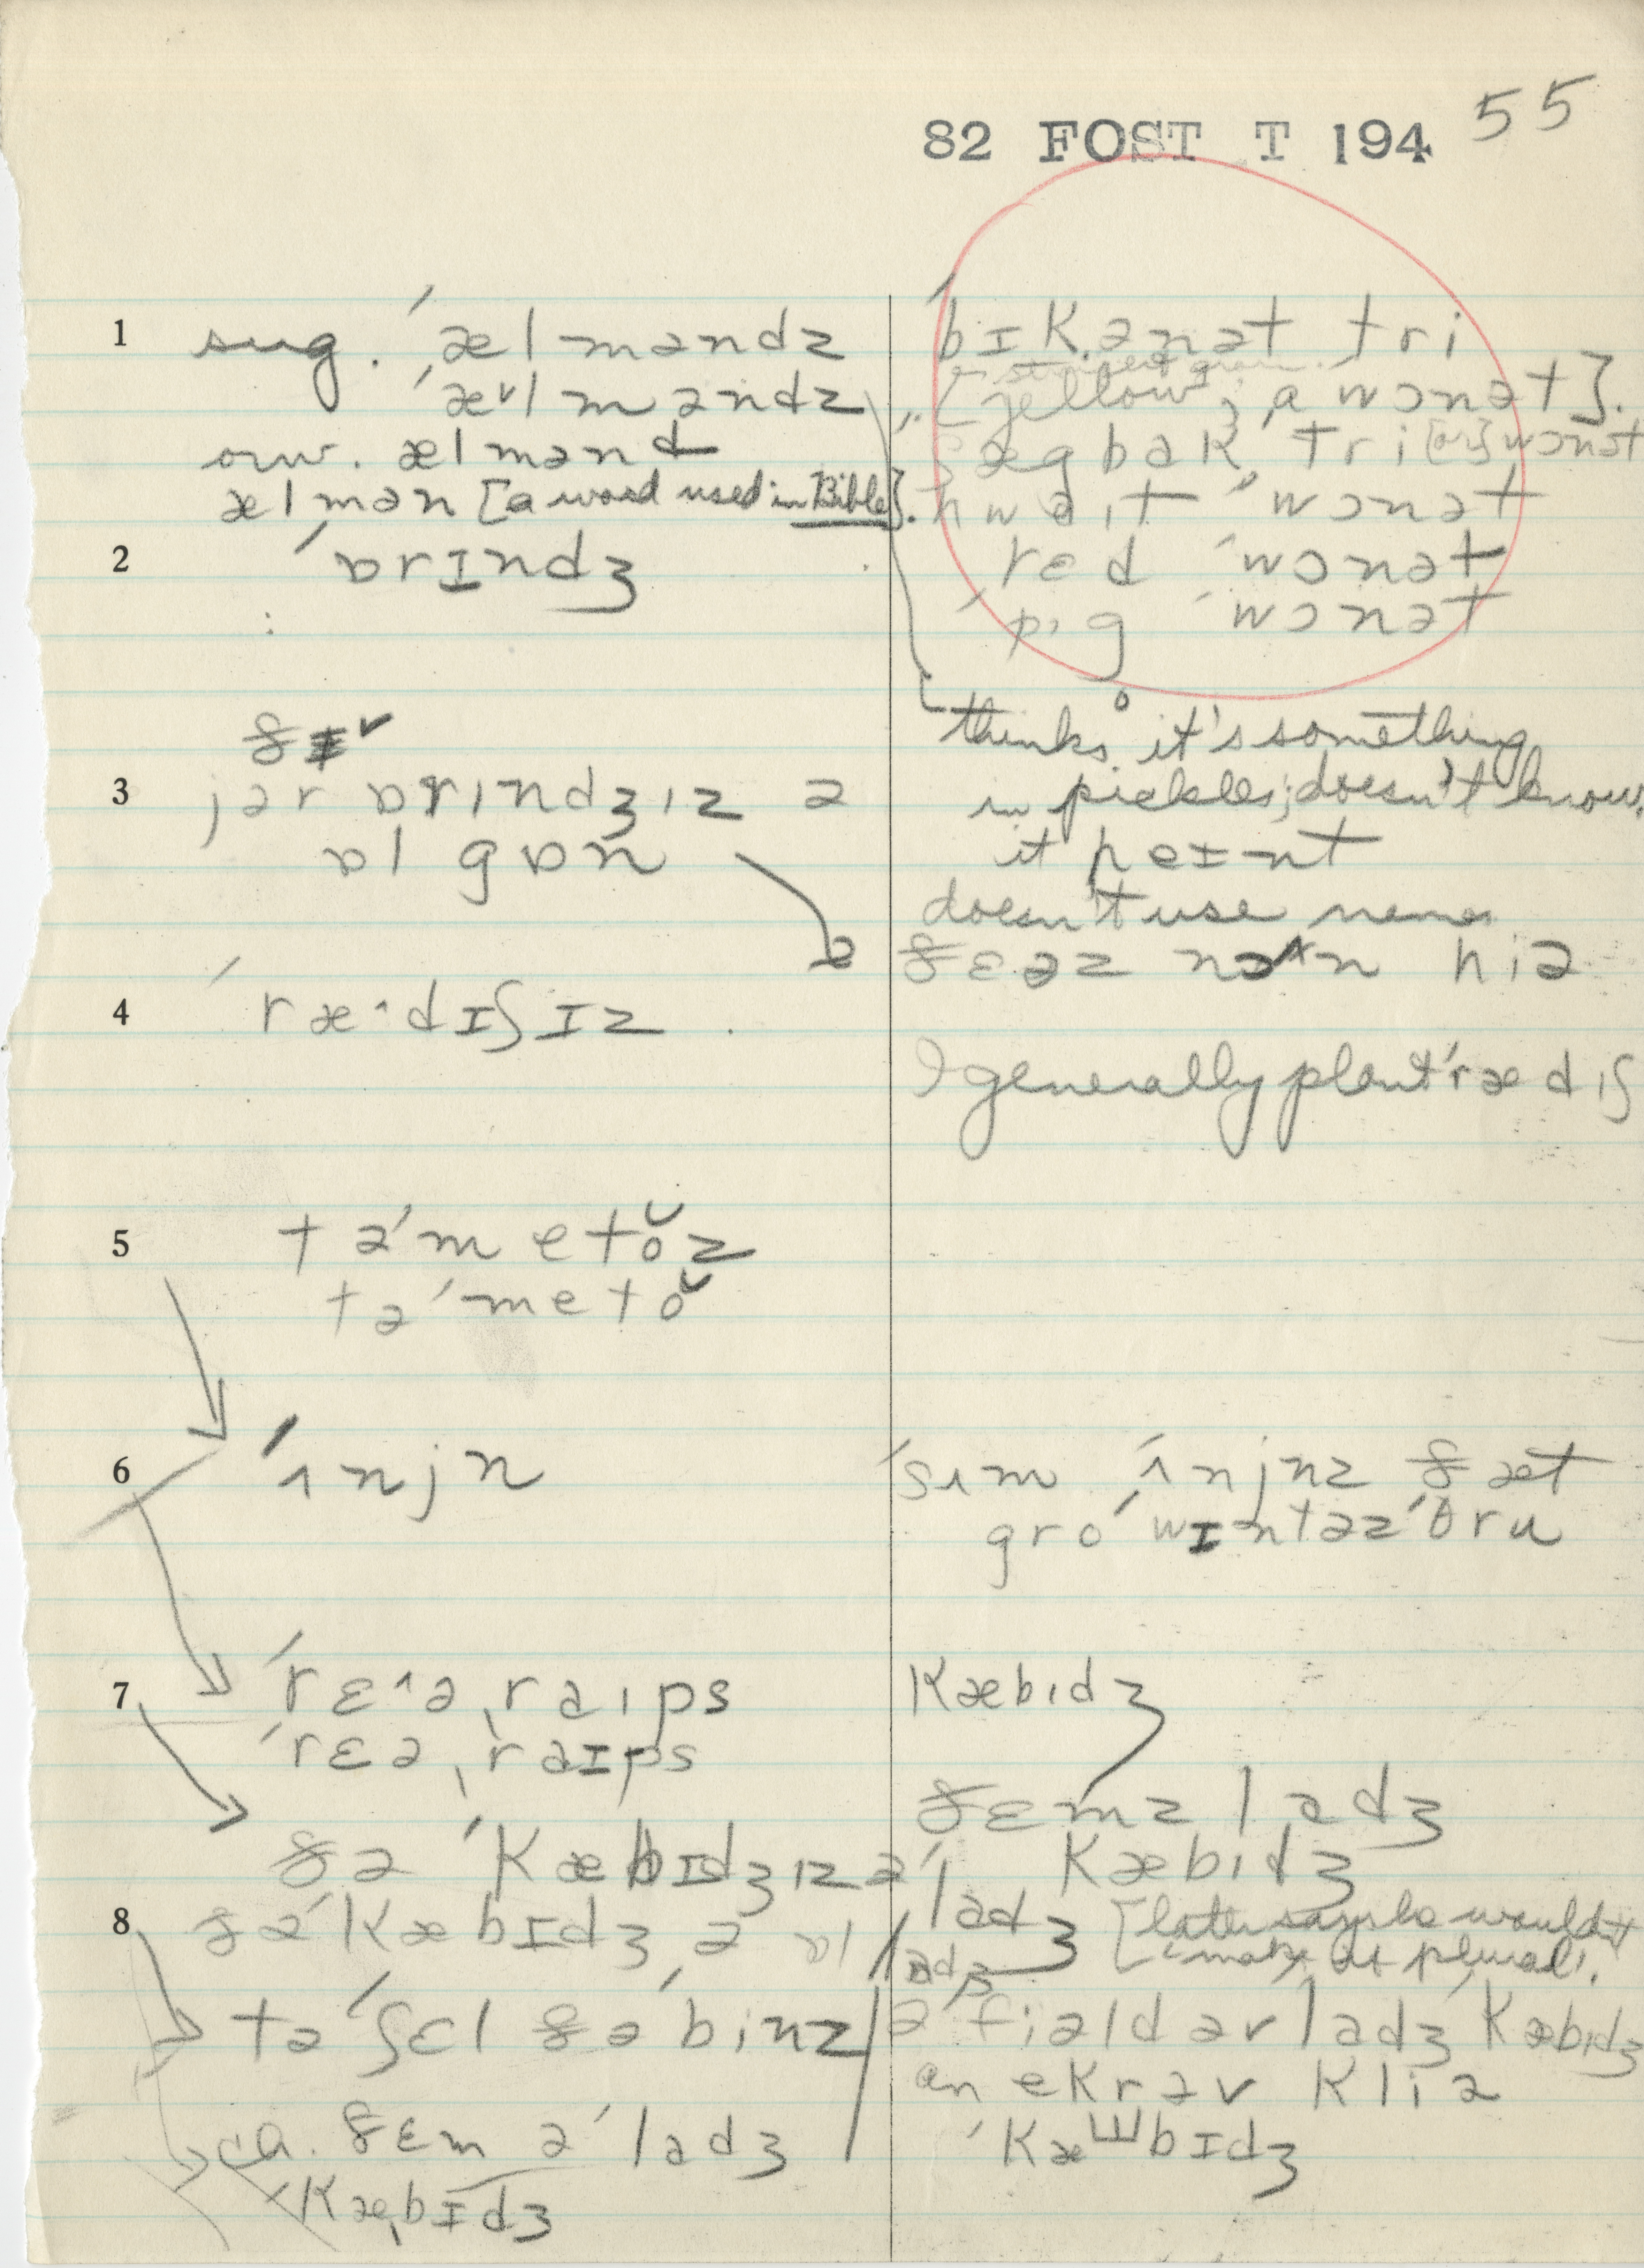 82 FOST T 194 55
1 sug. ˈælməndz
ˈæᵛlməndz
aux. ælmənd
ælmən [a word used in Bible].
2 ˈɒrɪndʒ
:
ðɪ˅
3 jər ɒrɪndʒɪz ə
ɒl gɒn
4 ˈræ^dɪʃɪz .
5 təˈmetŏz
təˈmetŏ
6 ˈʌnjn
7 ˈrɛ^ə ˌraɪps
ˈrɛə ˌraɪps
ðə ˈkæbɪdʒɪz ə
8 ðəˈkæbɪdʒ ə ɒl
tə ˈʃɛl ðə ˈbinz
ca. ðɛm ə ˈladʒ
ˈkæbɪdʒ
ˈbɪkənət tri
[yellow; a wɔnət].
ʃægbak tri [or] wɔnət
hwaɪt ˈwɔnət
red ˈwɔnət
ˈpɪg ˈwɔnət
thinks it's something
in pickles; doesn't know.
it peɪnt
doesn't use name
ðɛəz nʌn hiə
I generally plant ˈrædɪʃ
ˈsʌm ˈʌnjnz ðæt
groˈwɪntəzˈθru
kæbɪdʒ
ðɛmz ladʒ
ˈkæbɪdʒ
ladʒ [later says he wouldn't
ladʒ "make it plural".
ə fiəld əv ladʒ ˈkæbɪdʒ
an ekrəv kliə
ˈkæbɪdʒ